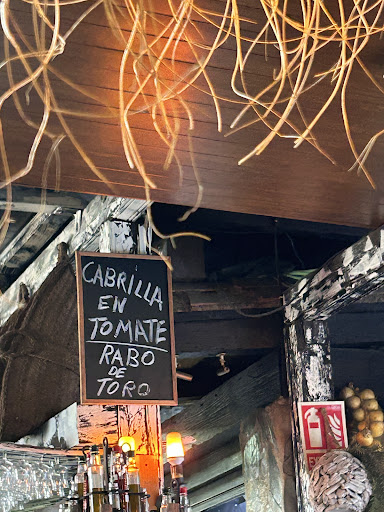 CABRILLA
EN
TOMATE
RABO
DE
TORO